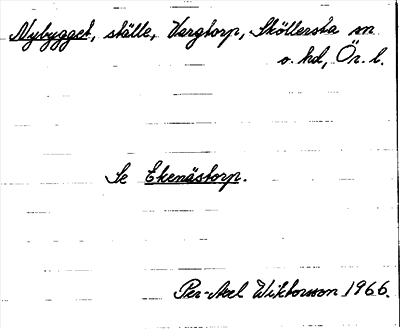 Nybygget, ställe, Vargtorp, Sköllersta sn
o. hd, Ör. l.
Se Ekenästorp.
Per-Axel Wiktorsson 1966.